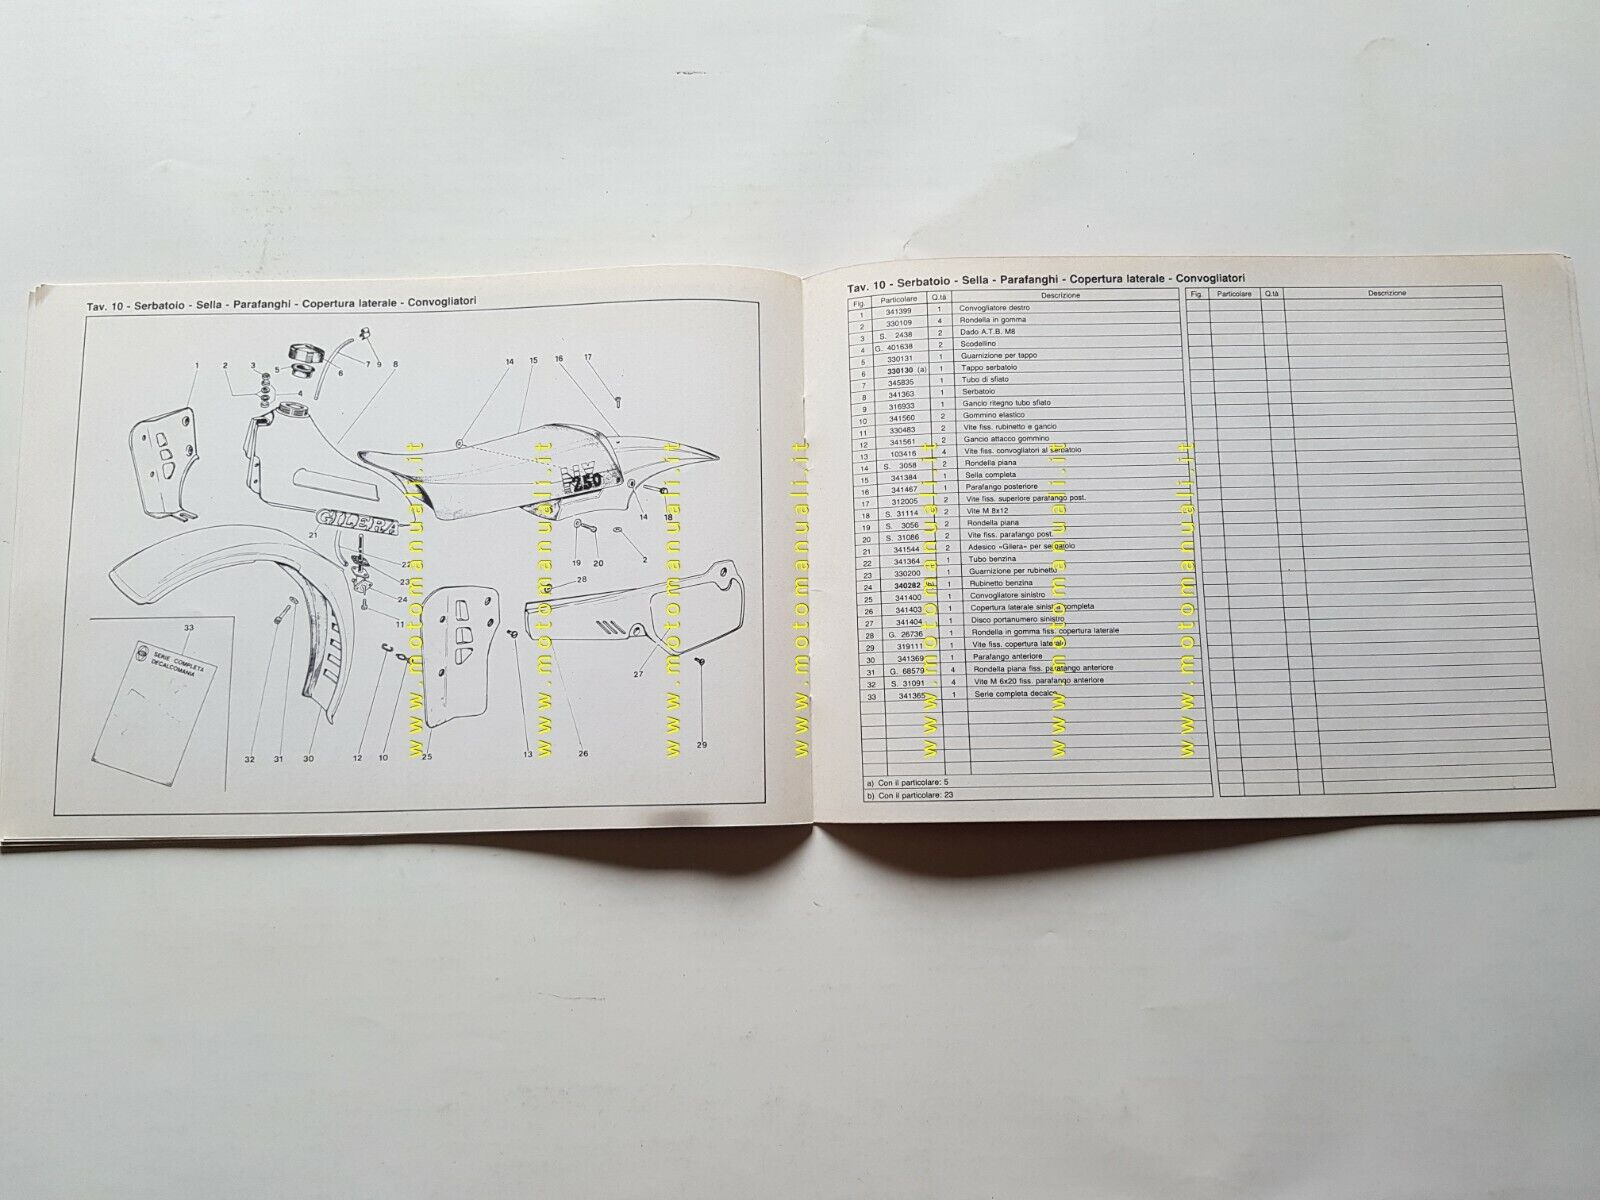 Tav. 10 - Serbatoio - Sella - Parafanghi - Copertura laterale - Convogliatori
1
2
3
4
5
6
7
9
8
14
15
16
17
GILERA
250
21
22
23
24
11
14
18
19
20
2
28
33
SERIE COMPLETA
DECALCOMANIA
27
32
31
30
12
10
25
13
26
29
Tav. 10 - Serbatoio - Sella - Parafanghi - Copertura laterale - Convogliatori
Fig. Particolare Q.tà Descrizione Fig. Particolare Q.tà Descrizione
1 341399 1 Convogliatore destro
2 330109 4 Rondella in gomma
3 S. 2438 2 Dado A.T.B. M8
4 G. 401638 2 Scodellino
5 330131 1 Guarnizione per tappo
6 330130 (a) 1 Tappo serbatoio
7 345835 1 Tubo di sfiato
8 341363 1 Serbatoio
9 316933 1 Gancio ritegno tubo sfiato
10 341560 2 Gommino elastico
11 330483 2 Vite fiss. rubinetto e gancio
12 341561 2 Gancio attacco gommino
13 103416 4 Vite fiss. convogliatori al serbatoio
14 S. 3058 2 Rondella piana
15 341384 1 Sella completa
16 341467 1 Parafango posteriore
17 312005 2 Vite fiss. superiore parafango post.
18 S. 31114 2 Vite M 8x12
19 S. 3056 2 Rondella piana
20 S. 31086 2 Vite fiss. parafango post.
21 341544 2 Adesico «Gilera» per serbatoio
22 341364 1 Tubo benzina
23 330200 1 Guarnizione per rubinetto
24 340282 (b) 1 Rubinetto benzina
25 341400 1 Convogliatore sinistro
26 341403 1 Copertura laterale sinistra completa
27 341404 1 Disco portanumero sinistro
28 G. 26736 1 Rondella in gomma fiss. copertura laterale
29 319111 1 Vite fiss. copertura laterale
30 341369 1 Parafango anteriore
31 G. 68579 4 Rondella piana fiss. parafango anteriore
32 S. 31091 4 Vite M 6x20 fiss. parafango anteriore
33 341365 1 Serie completa decalco
a) Con il particolare: 5
b) Con il particolare: 23
www.motomanuali.it
www.motomanuali.it
www.motomanuali.it
www.motomanuali.it
www.motomanuali.it
www.motomanuali.it
www.motomanuali.it